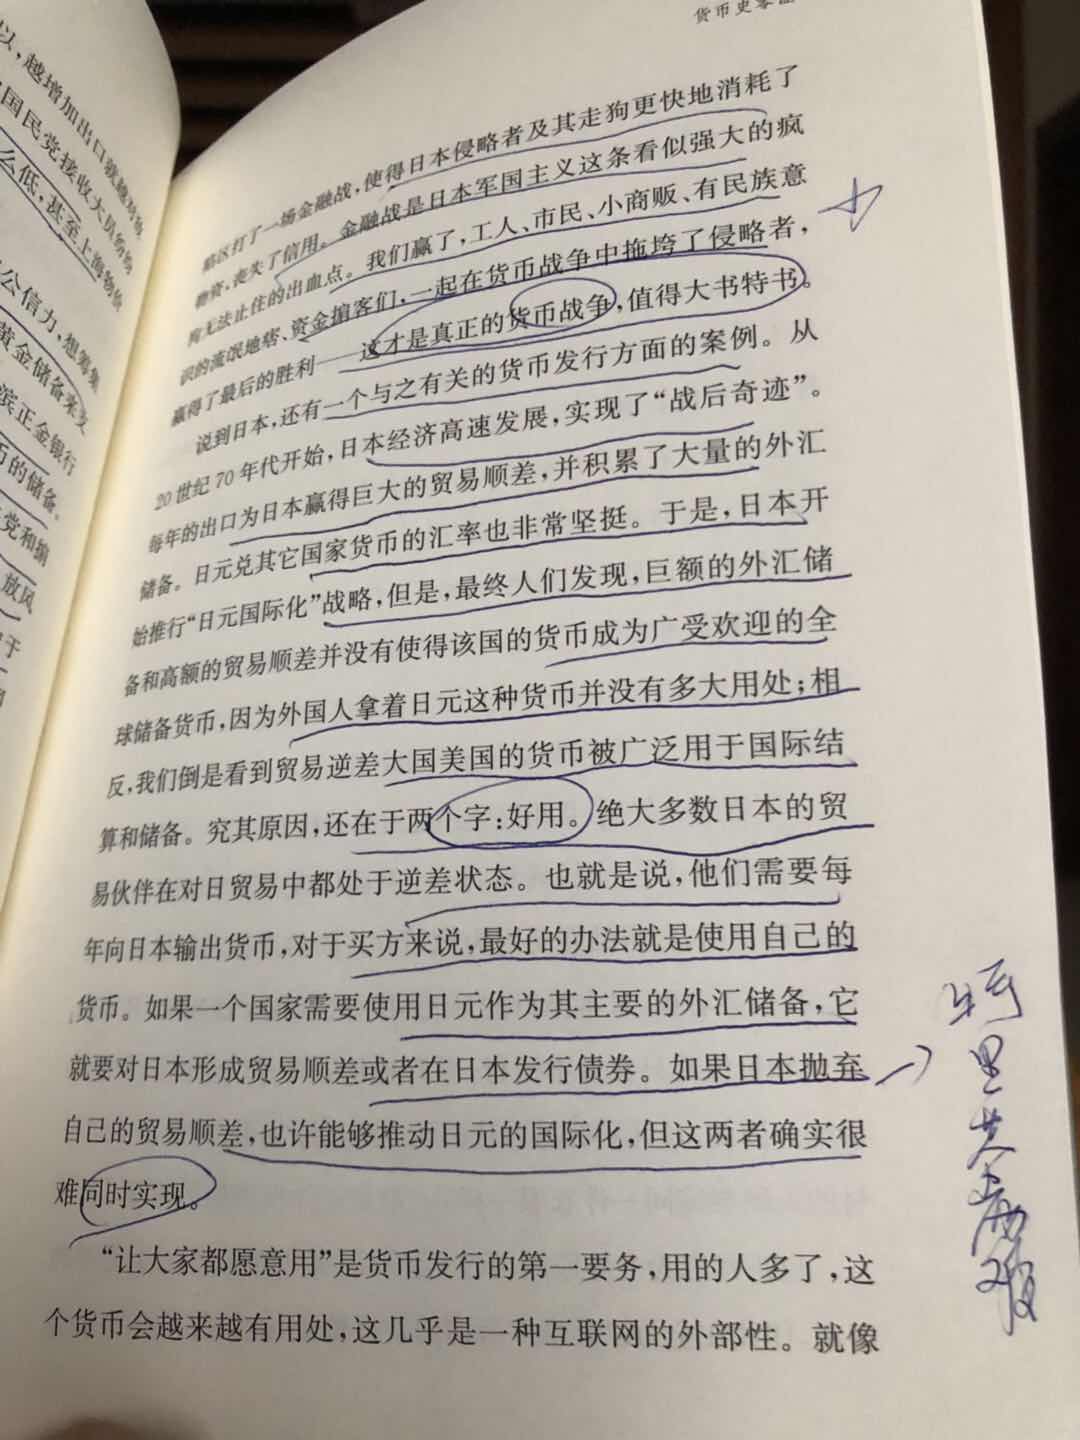 以,越增加出口就越
国民党接收大员纷纷
么低,甚至上海物价
公信力,想筹集
黄金储备来支
滨正金银行
币的储备。
党和
放风
于
货币史零
略区打了一场金融战,使得日本侵略者及其走狗更快地消耗了
物资,丧失了信用。金融战是日本军国主义这条看似强大的疯
狗无法止住的出血点。我们赢了,工人、市民、小商贩、有民族意
识的流氓地痞、资金掮客们,一起在货币战争中拖垮了侵略者,
赢得了最后的胜利——这才是真正的货币战争,值得大书特书。
说到日本,还有一个与之有关的货币发行方面的案例。从
20世纪70年代开始,日本经济高速发展,实现了“战后奇迹”。
每年的出口为日本赢得巨大的贸易顺差,并积累了大量的外汇
储备。日元兑其它国家货币的汇率也非常坚挺。于是,日本开
始推行“日元国际化”战略,但是,最终人们发现,巨额的外汇储
备和高额的贸易顺差并没有使得该国的货币成为广受欢迎的全
球储备货币,因为外国人拿着日元这种货币并没有多大用处;相
反,我们倒是看到贸易逆差大国美国的货币被广泛用于国际结
算和储备。究其原因,还在于两个字:好用。绝大多数日本的贸
易伙伴在对日贸易中都处于逆差状态。也就是说,他们需要每
年向日本输出货币,对于买方来说,最好的办法就是使用自己的
货币。如果一个国家需要使用日元作为其主要的外汇储备,它
就要对日本形成贸易顺差或者在日本发行债券。如果日本抛弃
自己的贸易顺差,也许能够推动日元的国际化,但这两者确实很
难同时实现。
“让大家都愿意用”是货币发行的第一要务,用的人多了,这
个货币会越来越有用处,这几乎是一种互联网的外部性。就像